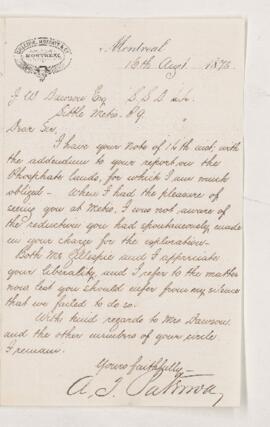 GILLESPIE, MOFFATT & CO.
MONTREAL
Montreal
16th Augt. 1876
J W Dawson Esq
Little Metis. P Q
Dear Sir,
I have your Note of 14th inst, with
the addendum to your report on the
Phosphate lands, for which I am much
obliged — When I had the pleasure of
seeing you at Metis, I was not aware of
the reduction you had spontaneously made
in your charge for the exploration —
Both Mr Gillespie and I appriciate
your liberality, and I refer to the matter
now lest you should infer from my silence
that we failed to do so.
With kind regards to Mrs Dawson
and the other members of your circle
I remain
Yours faithfully
A. T. Paterson